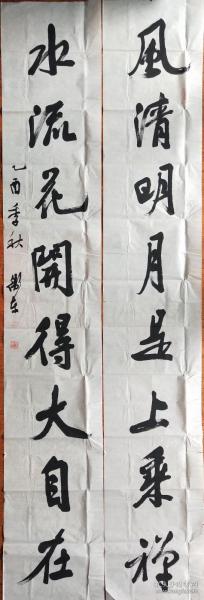 風清明月是上乘禅
水流花開得大自在
乙酉季秋